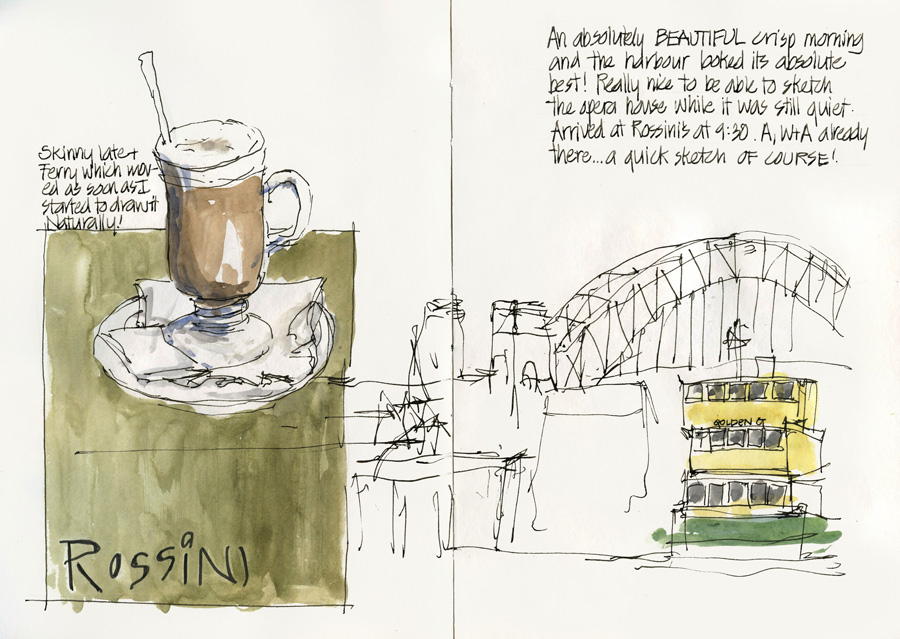 An absolutely BEAUTIFUL crisp morning
and the harbour looked its absolute
best! Really nice to be able to sketch
the opera house while it was still quiet.
Arrived at Rossini's at 9:30. A, W+A already
there... a quick sketch OF COURSE!
Skinny late +
Ferry which mov-
ed as soon as I
started to draw it
Naturally!
GOLDEN G
ROSSINI